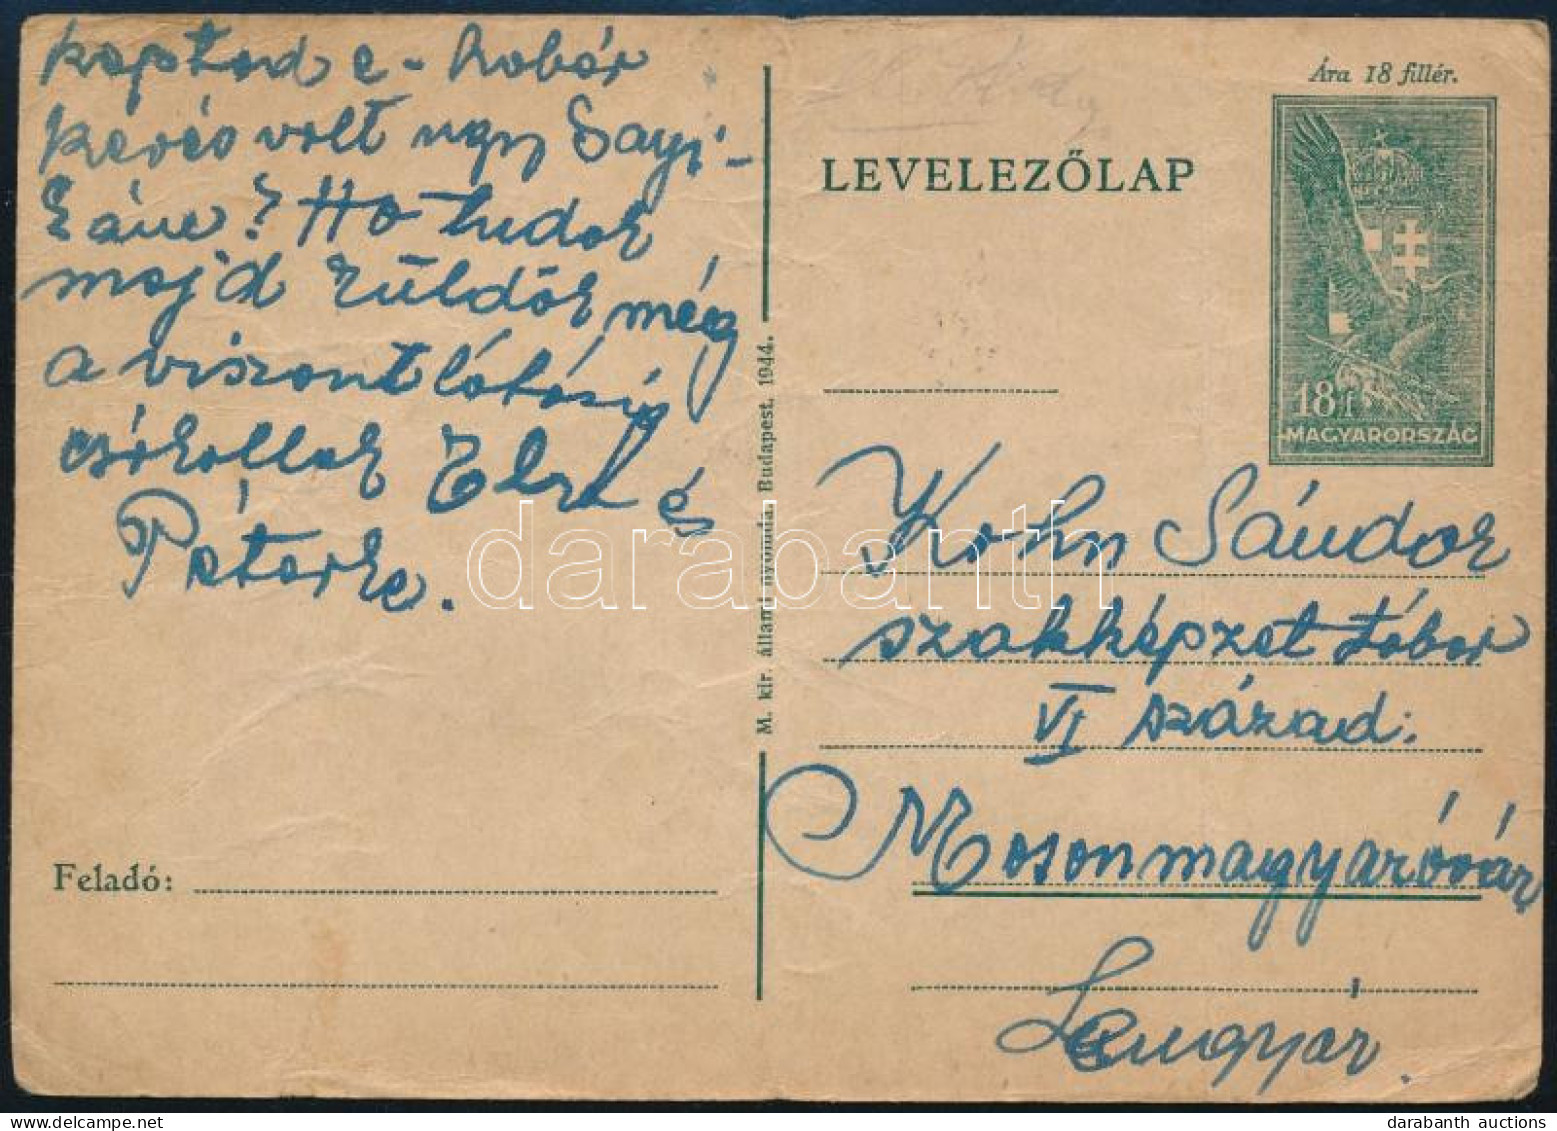 kaptad e - habár
kevés volt ugy Sanyi-
káne? Ha tudok
majd küldök még
a viszontlátásig
csókollak Elza és
Péterke.
Feladó:
M. kir. állami nyomda. Budapest. 1944.
Ára 18 fillér.
LEVELEZŐLAP
18 f
MAGYARORSZÁG
Kohn Sándor
szakképzet tábor
VI század.
Mosonmagyaróvár
darabanth
darabanth auctions